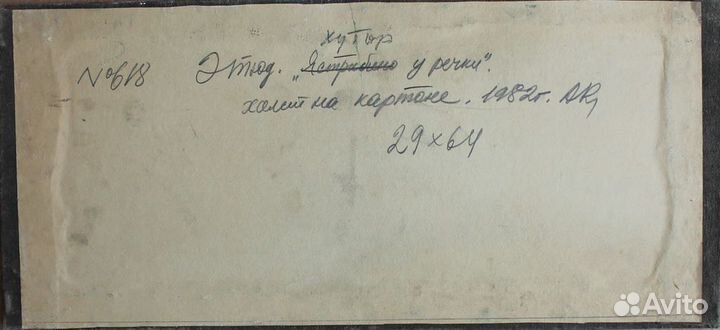 хутор
№618 Этюд. „Ястребино у речки".
холст на картоне. 1982г.
29×64
Avito